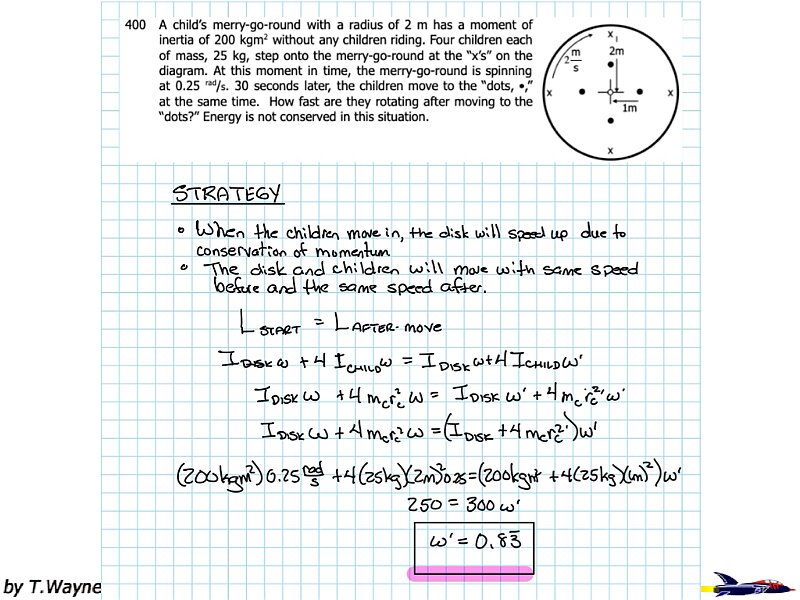 400 A child's merry-go-round with a radius of 2 m has a moment of
inertia of 200 kgm² without any children riding. Four children each
of mass, 25 kg, step onto the merry-go-round at the "x's" on the
diagram. At this moment in time, the merry-go-round is spinning
at 0.25 rad/s. 30 seconds later, the children move to the "dots, •,"
at the same time. How fast are they rotating after moving to the
"dots?" Energy is not conserved in this situation.
x
2m
2 m/s
x
x
1m
x
STRATEGY
• When the children move in, the disk will speed up due to
conservation of momentum
• The disk and children will move with same speed
before and the same speed after.
L START = L AFTER-move
I DISK ω + 4 I CHILD ω = I DISK ω + 4 I CHILD ω'
I DISK ω + 4 m_c r_c² ω = I DISK ω' + 4 m_c r_c²' ω'
I DISK ω + 4 m_c r_c² ω = (I DISK + 4 m_c r_c²') ω'
(200 kgm²) 0.25 rad/s + 4(25kg)(2m)² 0.25 = (200 kgm² + 4(25kg)(1m)²) ω'
250 = 300 ω'
ω' = 0.83̅
by T.Wayne